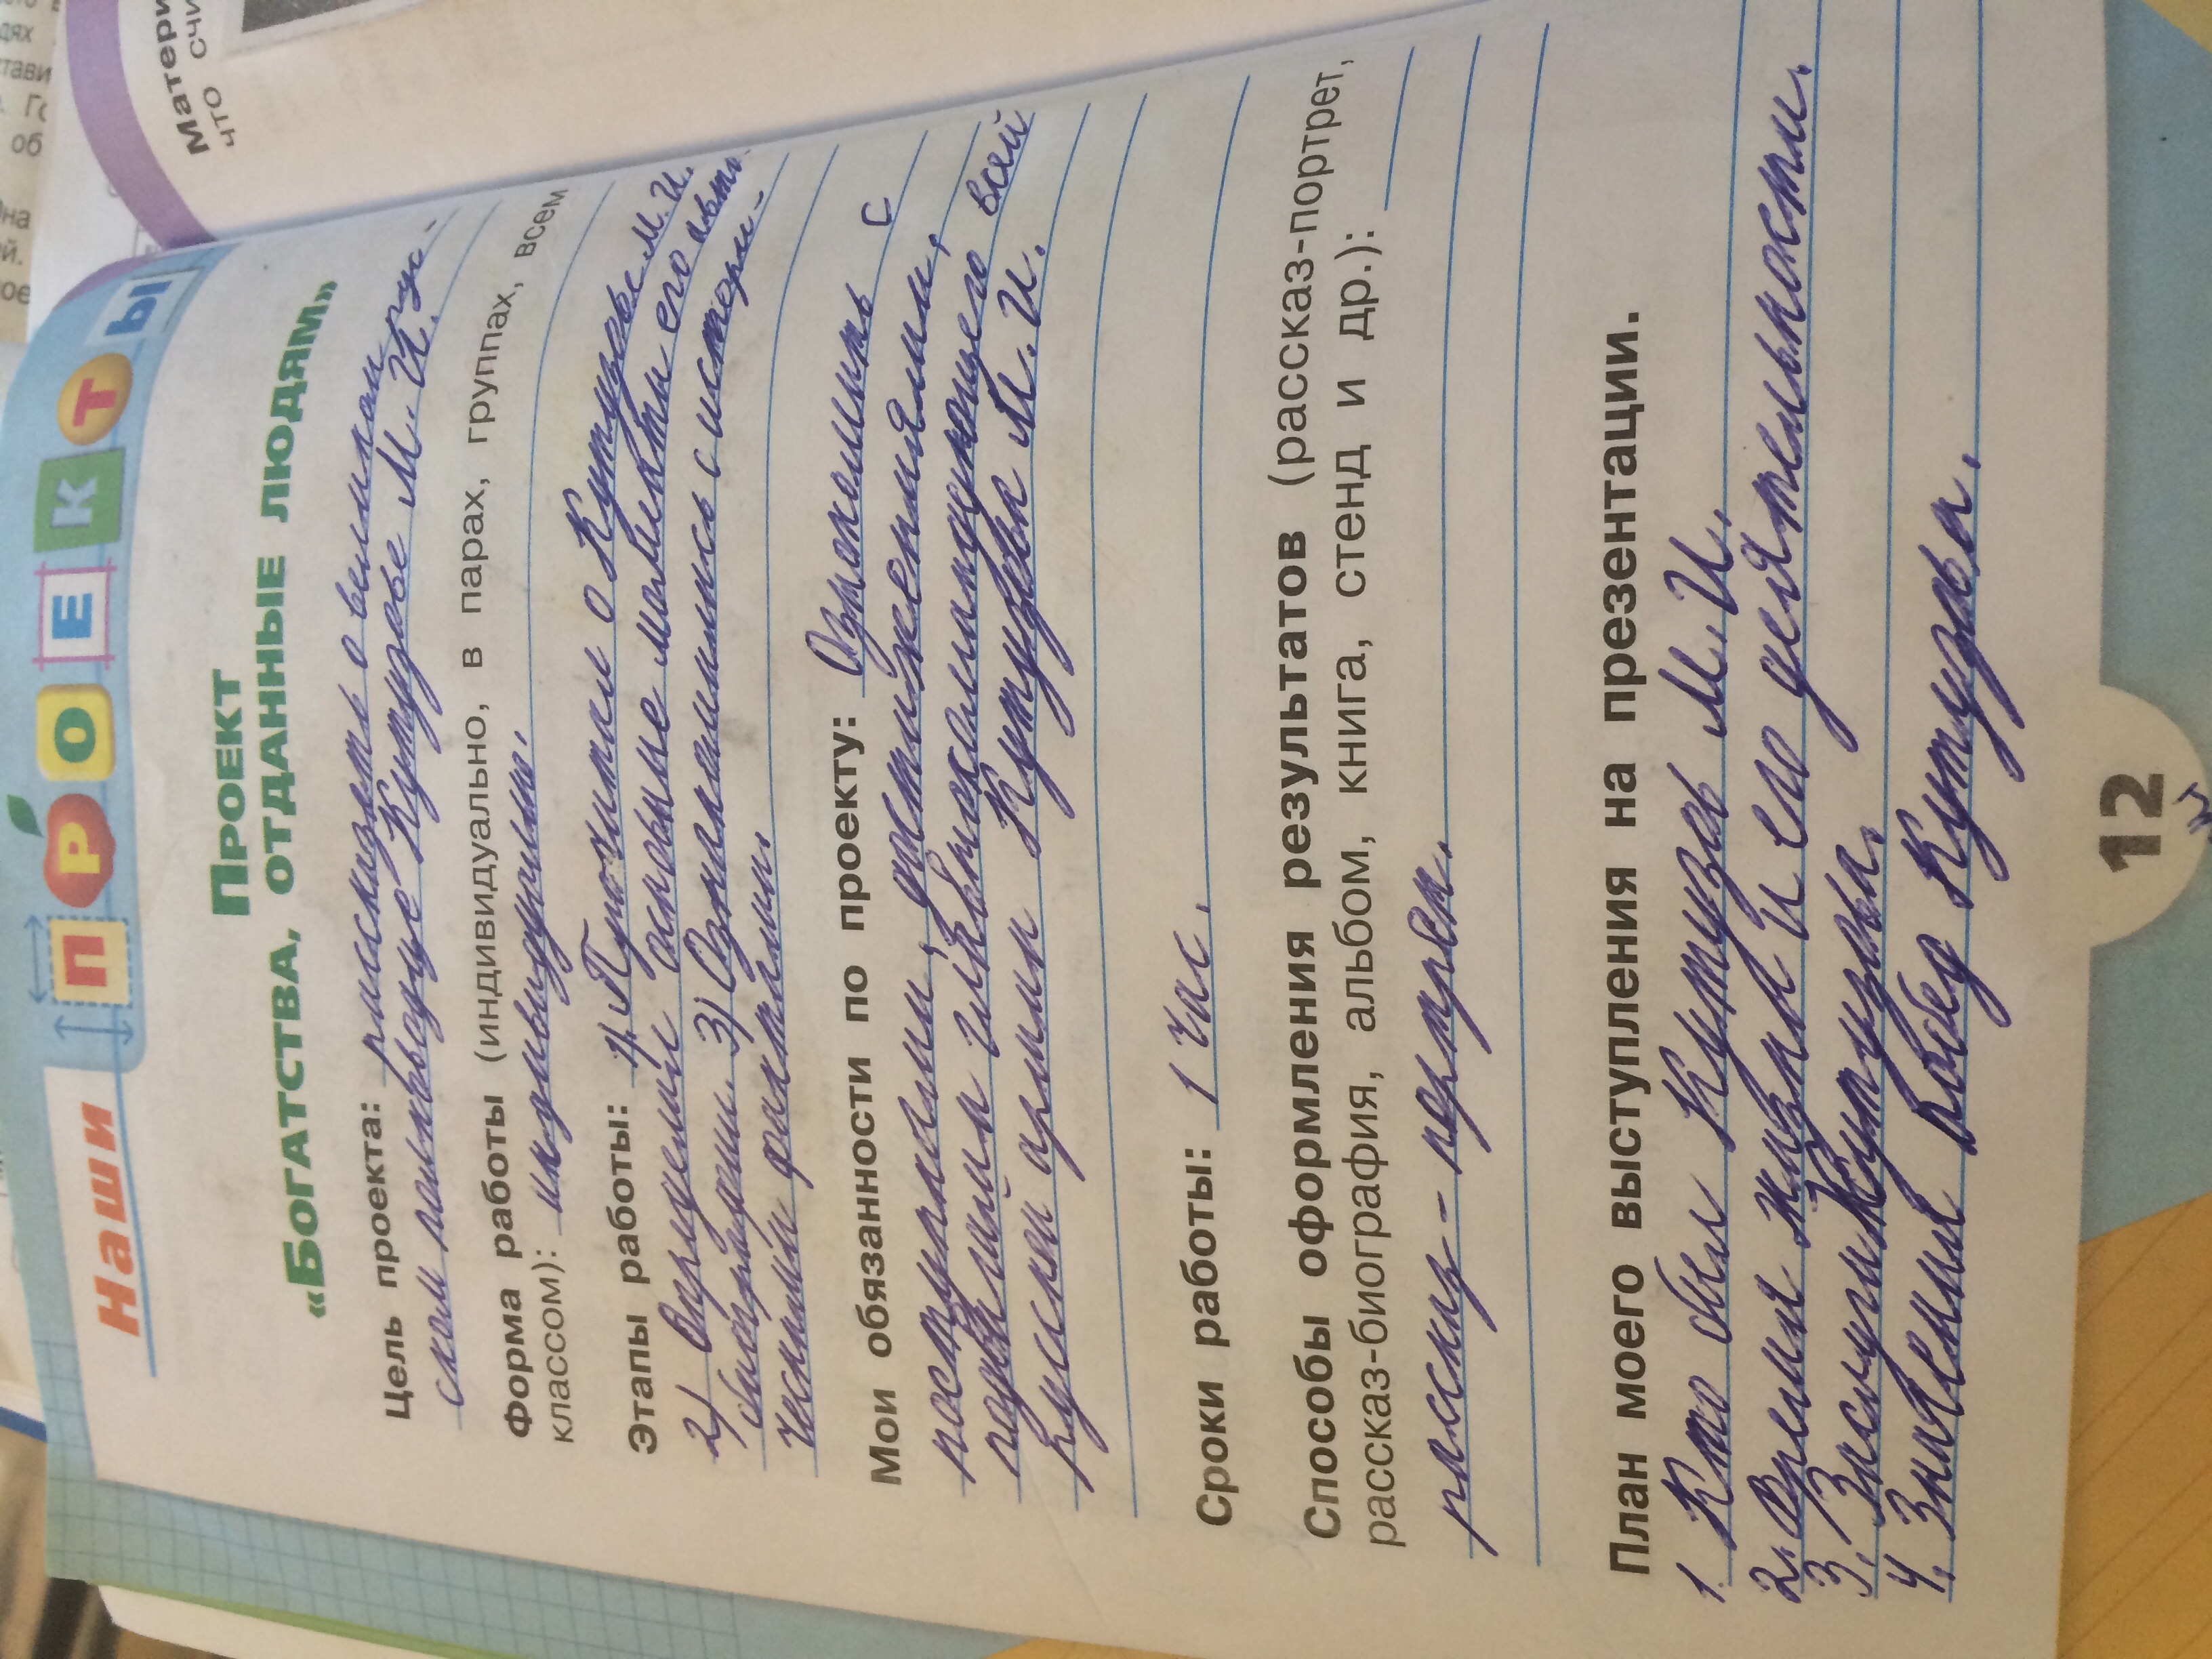 Наши ПРОЕКТЫ
ПРОЕКТ
«БОГАТСТВА, ОТДАННЫЕ ЛЮДЯМ»
Цель проекта: рассказать о великом рус-
ском полководце Кутузове М. И.
Форма работы (индивидуально, в парах, группах, всем
классом): индивидуально.
Этапы работы: 1). Прочитал о Кутузове М. И.
2) Определил основные моменты его авто-
биографии. 3) Ознакомились с истори-
ческими фактами.
Мои обязанности по проекту: Ознакомить с
поступками, достижениями,
подвигами главнокомандующего всей
русской армии Кутузова М. И.
Сроки работы: 1 час.
Способы оформления результатов (рассказ-портрет,
рассказ-биография, альбом, книга, стенд и др.):
рассказ - портрет.
План моего выступления на презентации.
1. Кто был Кутузов М. И.
2. Время жизни и его деятельности.
3. Заслуги Кутузова.
4. Значения побед Кутузова.
12
Матери
что счи